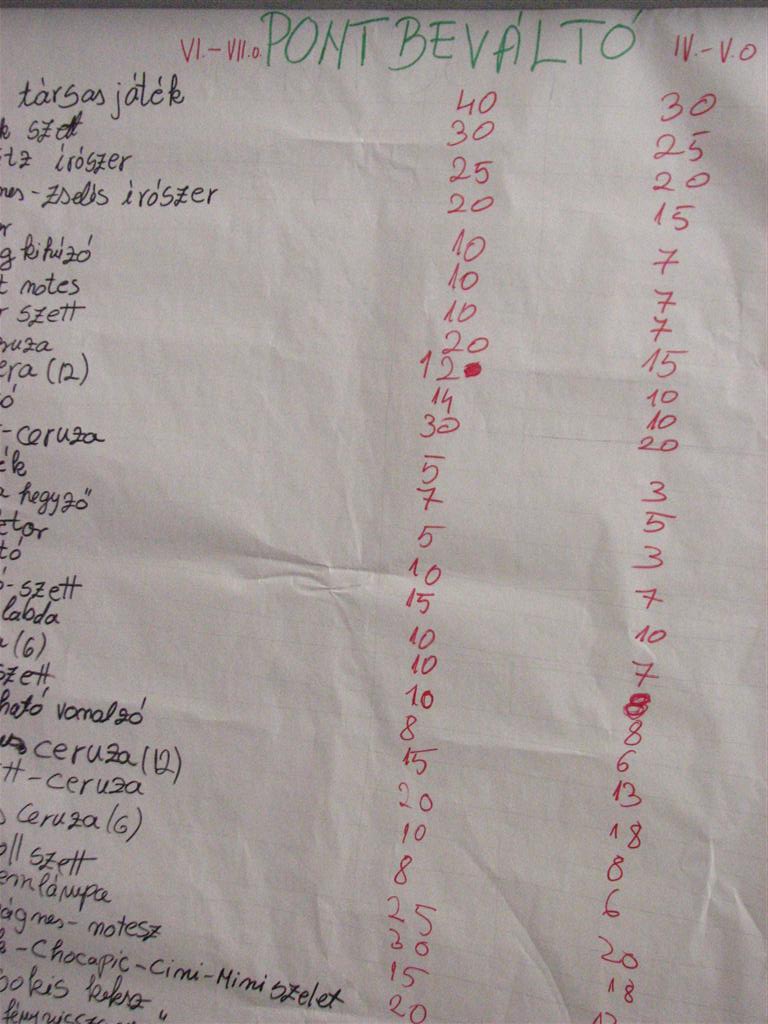 VI.-VII.o. PONTBEVÁLTÓ IV.-V.O
társasjáték 40 30
k szett 30 25
tz írószer 25 20
nes-zselés írószer 20 15
g kihúzó 10 7
t notes 10 7
r szett 10 7
ruza 20 15
era (12) 12 10
ó 14 10
-ceruza 30 20
ék 5 3
a hegyző 7 5
etor 5 3
tó 10 7
ó-szett 15 10
labda 10 7
a (6) 10 8
szett 10 8
ható vonalzó 8 6
ceruza (12) 15 13
tt-ceruza 20 18
s ceruza (6) 10 8
oll szett 8 6
emlámpa 25 20
ágnes-notesz 20 18
-Chocapic-Cini-Mini szelet 15
okis keksz 20